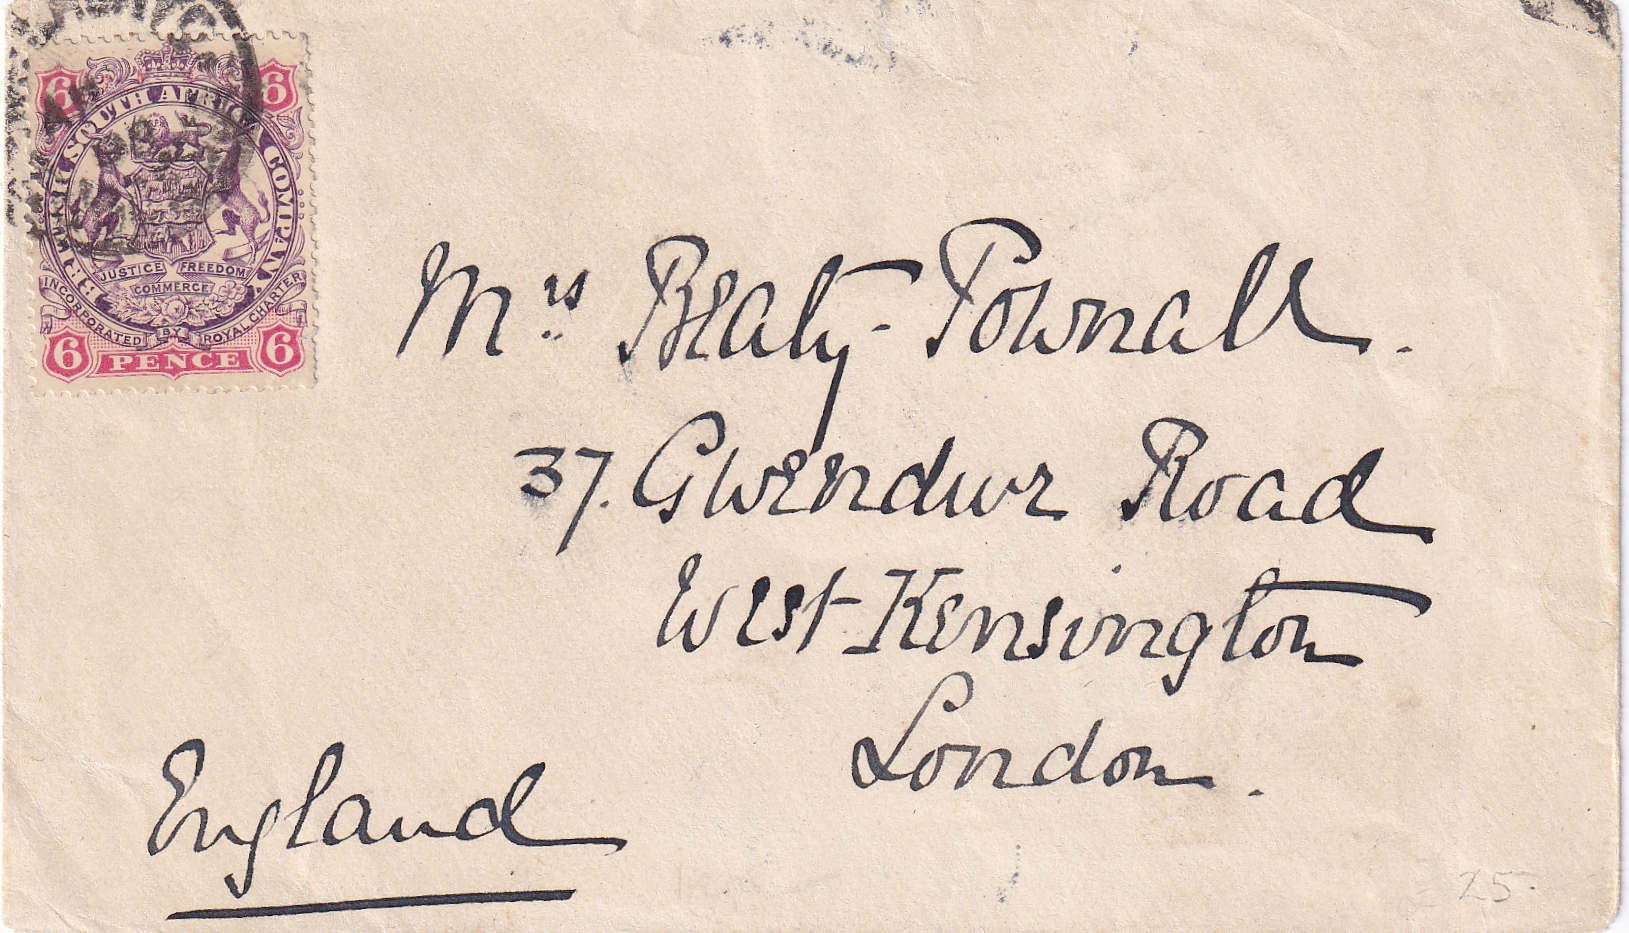 6 6
BRITISH SOUTH AFRICA COMPANY
JUSTICE FREEDOM
COMMERCE
INCORPORATED BY ROYAL CHARTER
6 PENCE 6
Mrs Beaty-Pownall.
37. Gwendwr Road
West Kensington
London.
England
25.